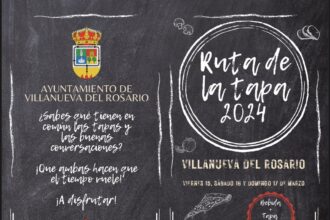 AYUNTAMIENTO DE
VILLANUEVA DEL ROSARIO
¿Sabes qué tienen en
común las tapas y
las buenas
conversaciones?
¡Que ambas hacen que
el tiempo vuele!
¡A disfrutar!
Ruta de
la tapa
2024
VILLANUEVA DEL ROSARIO
VIERNES 15, SÁBADO 16 Y DOMINGO 17 DE MARZO
Bebida
+
tapa